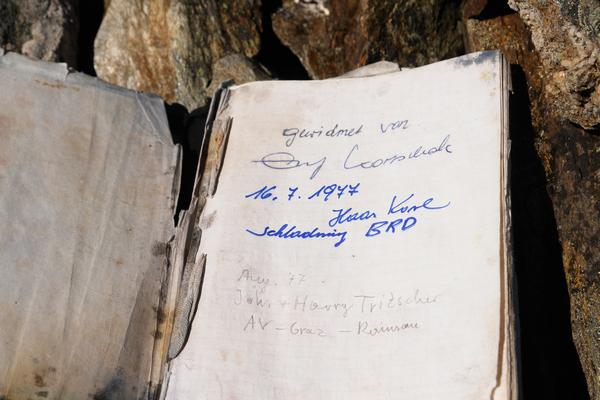 gewidmet von
16. 7. 1977
Haas Karl
Schladming BRD
Aug. 77
Harry Tritscher
AV - Graz - Ramsau